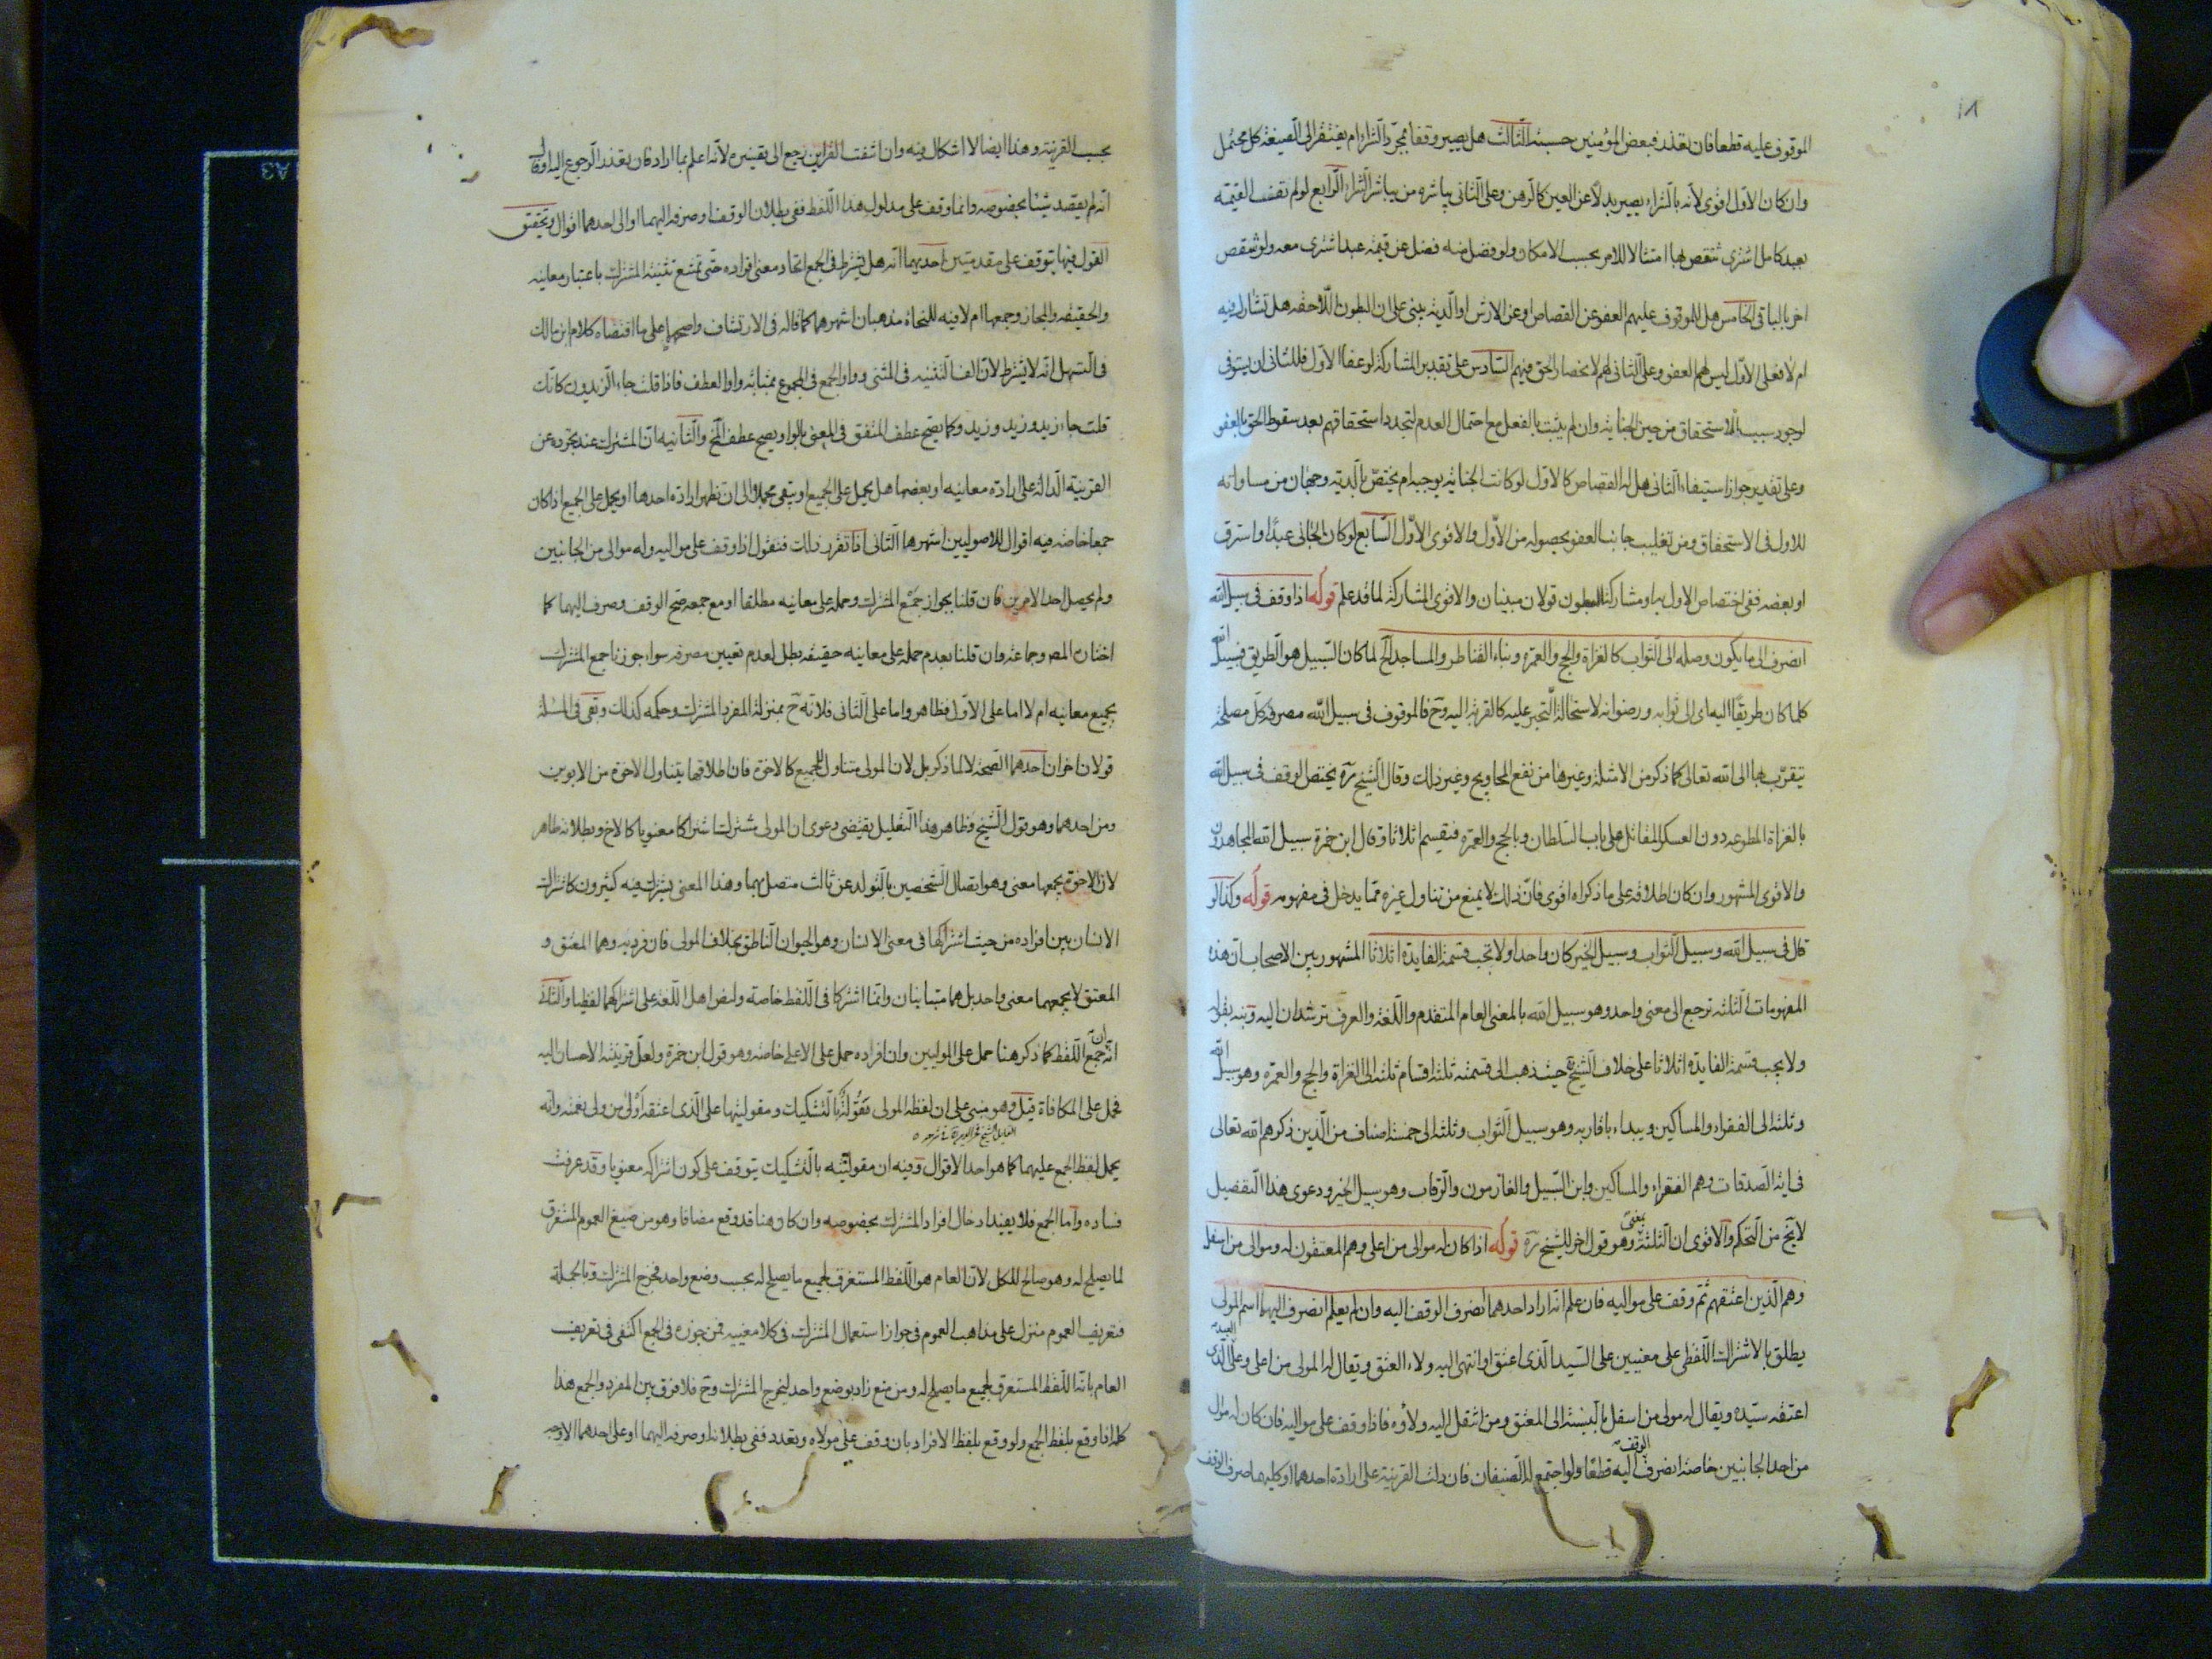 ١٨
الموقوف عليه قطعا فان تعذر فبعض المؤمنين حسبة الثالث هل يصير وقفا بمجرد الشراء ام يفتقر الى الصيغة كل محتمل
وان كان الاول اقوى لانه بالشراء يصير بدلا عن العين كالرهن وعلى الثانى يباشره من يباشر الشراء الرابع لو لم تف القيمة
بعبد كامل اشترى شقص بها امتثالا للامر بحسب الامكان ولو فضل منه فضل عن قيمة عبد اشترى معه ولو شقص
اخر بالباقى الخامس هل للموقوف عليهم العفو عن القصاص او عن الارش او الدية يبنى على ان البطون اللاحقة هل تشارك فيه
ام لا فعلى الاول ليس لهم العفو وعلى الثانى لهم لانحصار الحق فيهم السادس على تقدير المشاركة لو عفا الاول فللثانى ان يستوفى
لوجود سبب الاستحقاق من حين الجناية وان لم يثبت بالفعل مع احتمال العدم لتجدد استحقاقهم بعد سقوط الحق بالعفو
وعلى تقدير جواز استيفاء الثانى هل له القصاص كالاول لو كانت الجناية يوجبه ام يختص بالدية وجهان من مساواته
للاول فى الاستحقاق ومن تغليب جانب العفو بحصوله من الاول والاقوى الاول السابع لو كان الجانى عبدا واسترق
او بعضه ففى اختصاص الاول به او مشاركة البطون قولان مبنيان والاقوى المشاركة لما قد علم قوله اذا وقف فى سبيل الله
انصرف الى ما يكون وصلة الى الثواب كالغزاة والحج والعمرة وبناء القناطر والمساجد الخ لما كان السبيل هو الطريق فسبيل الله
كلما كان طريقا اليه اى الى ثوابه ورضوانه لاستحالة التحيز عليه كالقربة اليه وح فالموقوف فى سبيل الله مصروفه كل مصلحة
يتقرب بها الى الله تعالى كما ذكر من الامثلة وغيرها من نفع المحاويج وغير ذلك وقال الشيخ ره يختص الوقف فى سبيل الله
بالغزاة المطوعه دون العسكر المقاتل على باب السلطان وبالحج والعمرة فيقسم اثلاثا وقال ابن حمزة سبيل الله المجاهدون
والاقوى المشهور وان كان اطلاقه على ما ذكراه اقوى فان ذلك لا يمنع من تناول غيره مما يدخل فى مفهومه قوله وكذا لو
قال فى سبيل الله وسبيل الثواب وسبيل الخير كان واحدا ولا تجب قسمة الفايدة اثلاثا المشهور بين الاصحاب ان هذه
المفهومات الثلثة ترجع الى معنى واحد وهو سبيل الله بالمعنى العام المتقدم واللغة والعرف ترشدان اليه ونبه بقوله
ولا يجب قسمة الفايدة اثلاثا على خلاف الشيخ ره حيث ذهب الى قسمته ثلثة اقسام ثلثه الى الغزاة والحج والعمرة وهو سبيل الله
وثلثه الى الفقراء والمساكين ويبداء باقاربه وهو سبيل الثواب وثلثه الى خمسة اصناف من الذين ذكرهم الله تعالى
فى اية الصدقات وهم الفقراء والمساكين وابن السبيل والغارمون والرقاب وهو سبيل الخير ودعوى هذا التفضيل
لا يخ من التحكم والاقوى ان الثلثة بمعنى وهو قول اخر للشيخ ره قوله اذا كان له موالى من اعلى وهم المعتقون له وموالى من اسفل
وهم الذين اعتقهم ثم وقف على مواليه فان علم انه اراد احدهما انصرف الوقف اليه وان لم يعلم انصرف اليهما اسم المولى
يطلق بالاشتراك اللفظى على معنيين على السيد الذى اعتق او انتهى اليه ولاء العتق ويقال له المولى من اعلى وعلى العبد الذى
اعتقه سيده ويقال له مولى من اسفل بالنسبة الى المعتق ومن انتقل اليه ولاؤه فاذا وقف على مواليه فان كان له موال
من احد الجانبين خاصة انصرف الوقف اليه قطعا ولو اجتمع له الصنفان فان دلت القرينة على ارادة احدهما او كليهما صرف الوقف
بحسب القرينة وهذا ايضا لا اشكال فيه وان انتفت القراين رجع الى تفسيره لانه اعلم بما اراد فان تعذر الرجوع اليه او قال
انه لم يقصد شيئا بخصوصه وانما وقف على مدلول هذا اللفظ ففى بطلان الوقف او صرفه اليهما او الى احدهما اقوال وتحقيق
القول فيها يتوقف على مقدمتين احديهما انه هل يشترط فى الجمع اتحاد معنى افراده حتى تمتنع تثنية المشترك باعتبار معانيه
والحقيقة والمجاز وجمعها ام لا فيه للنحاة مذهبان اشهرهما كما قاله فى الارتشاف واصحهما على ما اقتضاه كلام ابن مالك
فى التسهيل انه لا يشترط لان الف التثنية فى المثنى وواو الجمع فى المجموع بمثابة واو العطف فاذا قلت جاء الزيدون كانك
قلت جاء زيد وزيد وزيد وكما يصح عطف المتفق فى المعنى بالواو يصح عطف الخ والثانية ان المشترك عند تجرده عن
القرينة الدالة على ارادة معانيه او بعضها هل يحمل على الجميع او يبقى مجملا الى ان تظهر ارادة احدها او يحمل على الجميع اذا كان
جمعا خاصة فيه اقوال للاصوليين اشهرها الثانى اذا تقرر ذلك فنقول اذا وقف على مواليه وله موالى من الجانبين
ولم يحصل احد الامرين فان قلنا بجواز جمع المشترك وحمله على معانيه مطلقا او مع جمعه صح الوقف وصرف اليهما كما
اختاره المص وجماعة وان قلنا بعدم حمله على معانيه حقيقة بطل لعدم تعيين مصرفه سواء جوزنا جمع المشترك
بجميع معانيه ام لا اما على الاول فظاهر واما على الثانى فلانه ح بمنزلة المفرد المشترك وحكمه كذلك وبقى فى المسئلة
قولان اخران احدهما الصحة لا لما ذكر بل لان المولى متناول للجميع كالاخوة فان اطلاقها يتناول الاخوة من الابوين
ومن احدهما وهو قول الشيخ وظاهر هذا التعليل يقتضى دعوى ان المولى مشترك اشتراكا معنويا كالاخ وبطلانه ظاهر
لان الاخوة يجمعها معنى وهو اتصال الشخصين بالتولد عن ثالث متصل بهما وهذا المعنى يشترك فيه كثيرون كاشتراك
الانسان بين افراده من حيث اشتراكها فى معنى الانسان وهو الحيوان الناطق بخلاف المولى فان فرديه وهما المعتق و
المعتق لا يجمعهما معنى واحد بل هما متباينان وانما اشتركا فى اللفظ خاصة ولنص اهل اللغة على اشتراكهما لفظيا والثانى
انه ان جمع اللفظ كما ذكر هنا حمل على الموليين وان افرده حمل على الاعلى خاصة وهو قول ابن حمزة ولعل قرينته الاحسان اليه
فحمل على المكافاة قيل وهو مبنى على ان لفظة المولى مقولة بالتشكيك ومقوليتها على الذى اعتقه اولى من ولى نعمته وانه
يحمل لفظ الجمع عليهما كما هو احد الاقوال وفيه ان مقوليته بالتشكيك يتوقف على كون اشتراكه معنويا وقد عرفت
فساده واما الجمع فلا يفيد ادخال افراد المشترك بخصوصه وان كان هنا قد وقع مضافا وهو من صيغ العموم المستغرق
لما يصلح له وهو صالح للكل لان العام هو اللفظ المستغرق لجميع ما يصلح له بحسب وضع واحد فخرج المشترك وبالجملة
فتعريف العموم منزل على مذاهب العموم فى جواز استعمال المشترك فى كلا معنييه فمن جوزه فى الجمع اكتفى فى تعريف
العام بانه اللفظ المستغرق لجميع ما يصلح له ومن منع زاد بوضع واحد ليخرج المشترك وح فلا فرق بين المفرد والجمع هذا
كله اذا وقع بلفظ الجمع ولو وقع بلفظ الافراد بان وقف على مولاه وتعدد ففى بطلانه او صرفه اليهما او على احدهما الاوجه